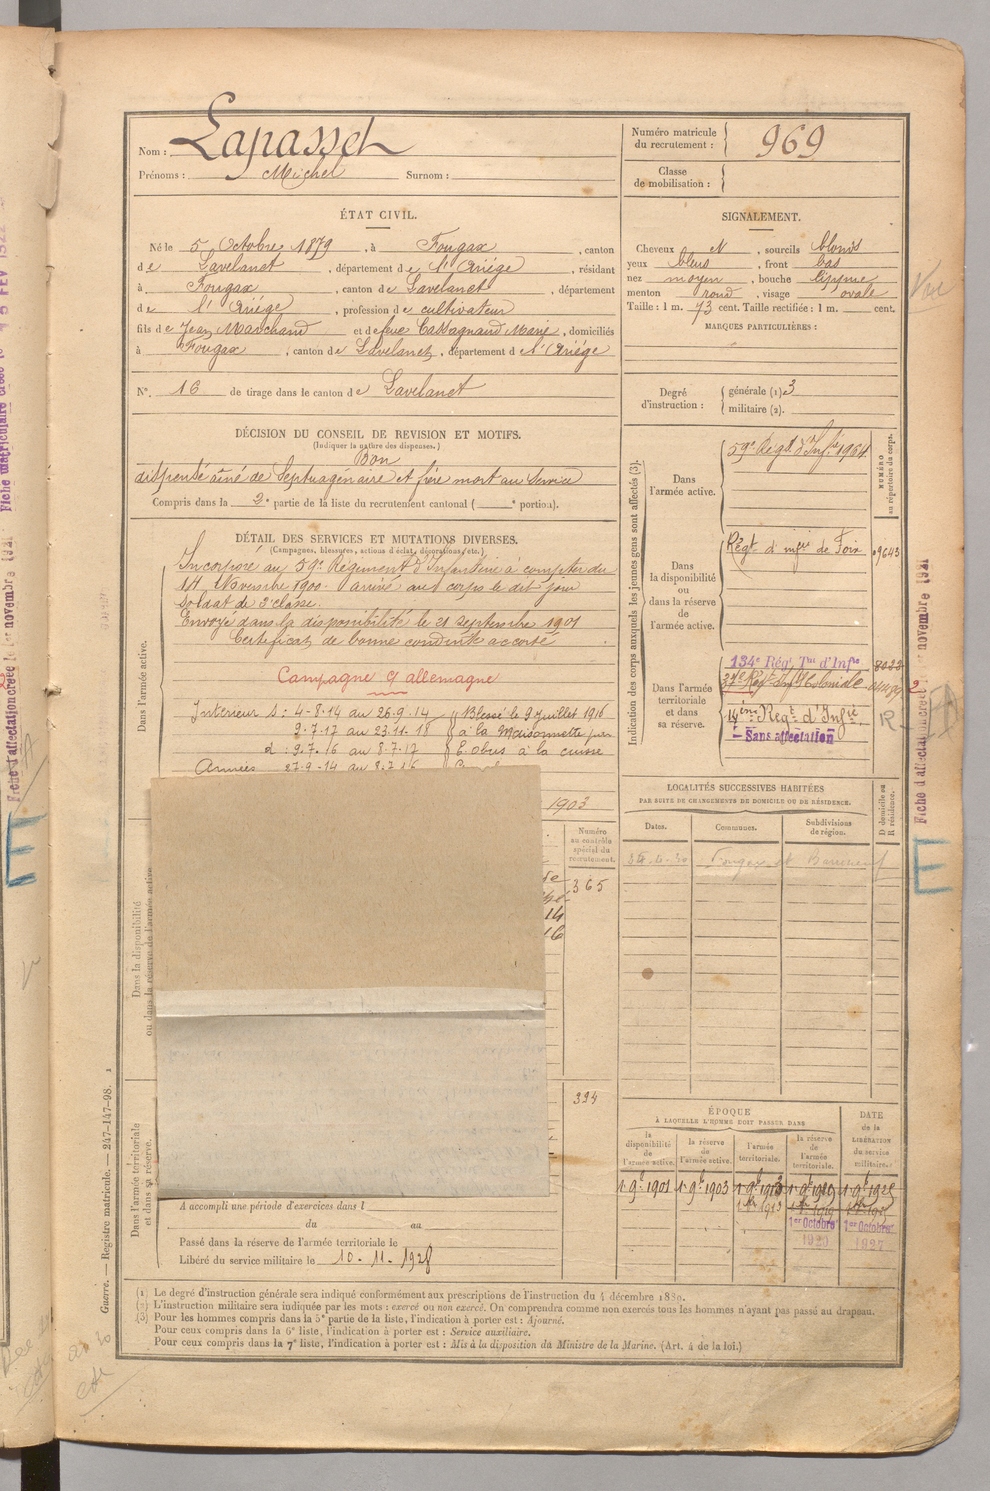 Nom : Lapasset
Prénoms : Michel Surnom :
Numéro matricule du recrutement : 969
Classe de mobilisation :
ÉTAT CIVIL.
Né le 5 Octobre 1879, à Fougax, canton
de Lavelanet, département de l'Ariége, résidant
à Fougax, canton de Lavelanet, département
de l'Ariége, profession de cultivateur
fils de Jean Marchand et de feue Cassagnaud Marie, domiciliés
à Fougax, canton de Lavelanet, département de l'Ariége
N°. 16 de tirage dans le canton de Lavelanet
SIGNALEMENT.
Cheveux N, sourcils blonds
yeux bleus, front bas
nez moyen, bouche
menton rond, visage ovale
Taille : 1 m. 73 cent. Taille rectifiée : 1 m. cent.
MARQUES PARTICULIÈRES :
Degré d'instruction : générale (1) 3
militaire (2).
DÉCISION DU CONSEIL DE REVISION ET MOTIFS.
(Indiquer la nature des dispenses.)
Bon
dispensé aîné de Septuagénaire et frère mort au Service
Compris dans la 2e partie de la liste du recrutement cantonal ( e portion).
DÉTAIL DES SERVICES ET MUTATIONS DIVERSES.
(Campagnes, blessures, actions d'éclat, décorations, etc.)
Dans l'armée active.
Incorporé au 59e Régiment d'Infanterie à compter du
14 Novembre 1900. Arrivé au corps le dit jour
soldat de 2e classe.
Envoyé dans la disponibilité le 21 septembre 1901
Certificat de bonne conduite accordé
Campagne c/ allemagne
Intérieur S : 4-8-14 au 26-9-14 Blessé le 9 juillet 1916
9.7.17 au 23.11.18 à la Maisonnette par
d : 9.7.16 au 8.7.17 E. obus à la cuisse
Armées 27-9-14 au 8.7.16
1903
Numéro au contrôle spécial du recrutement.
365
14
16
Dans la disponibilité ou dans la réserve de l'armée active
324
Dans l'armée territoriale et dans sa réserve.
A accompli une période d'exercices dans l
du au
Passé dans la réserve de l'armée territoriale le
Libéré du service militaire le 10-11-1928
Indication des corps auxquels les jeunes gens sont affectés (3).
NUMÉRO au répertoire du corps.
Dans l'armée active.
59e Régt d'Infie 1964
Dans la disponibilité ou dans la réserve de l'armée active.
Régt d'infie de Foix 09643
Dans l'armée territoriale et dans sa réserve.
134e Rég. Tal d'Infie 8022
37e Régt Infie Coloniale
14ème Regt d'Infie
Sans affectation
LOCALITÉS SUCCESSIVES HABITÉES
PAR SUITE DE CHANGEMENTS DE DOMICILE OU DE RÉSIDENCE.
Dates. Communes. Subdivisions de région. D domicile ou R résidence.
ÉPOQUE
À LAQUELLE L'HOMME DOIT PASSER DANS
la disponibilité de l'armée active. la réserve de l'armée active. l'armée territoriale. la réserve de l'armée territoriale. DATE de la LIBÉRATION du service militaire.
1 9bre 1901 1 9bre 1903 1 9bre 1913 1 9bre 1919 1 9bre 1925
1er Octobre 1er Octobre
1920 1927
(1) Le degré d'instruction générale sera indiqué conformément aux prescriptions de l'instruction du 4 décembre 1889.
(2) L'instruction militaire sera indiquée par les mots : exercé ou non exercé. On comprendra comme non exercés tous les hommes n'ayant pas passé au drapeau.
(3) Pour les hommes compris dans la 5e partie de la liste, l'indication à porter est : Ajourné.
Pour ceux compris dans la 6e liste, l'indication à porter est : Service auxiliaire.
Pour ceux compris dans la 7e liste, l'indication à porter est : Mis à la disposition du Ministre de la Marine. (Art. 4 de la loi.)
Guerre. — Registre matricule. — 247-147-98.
Fiche d'affectation créée le 1er novembre 1921
E
Fiche d'affectation créée 1er novembre 1921
E